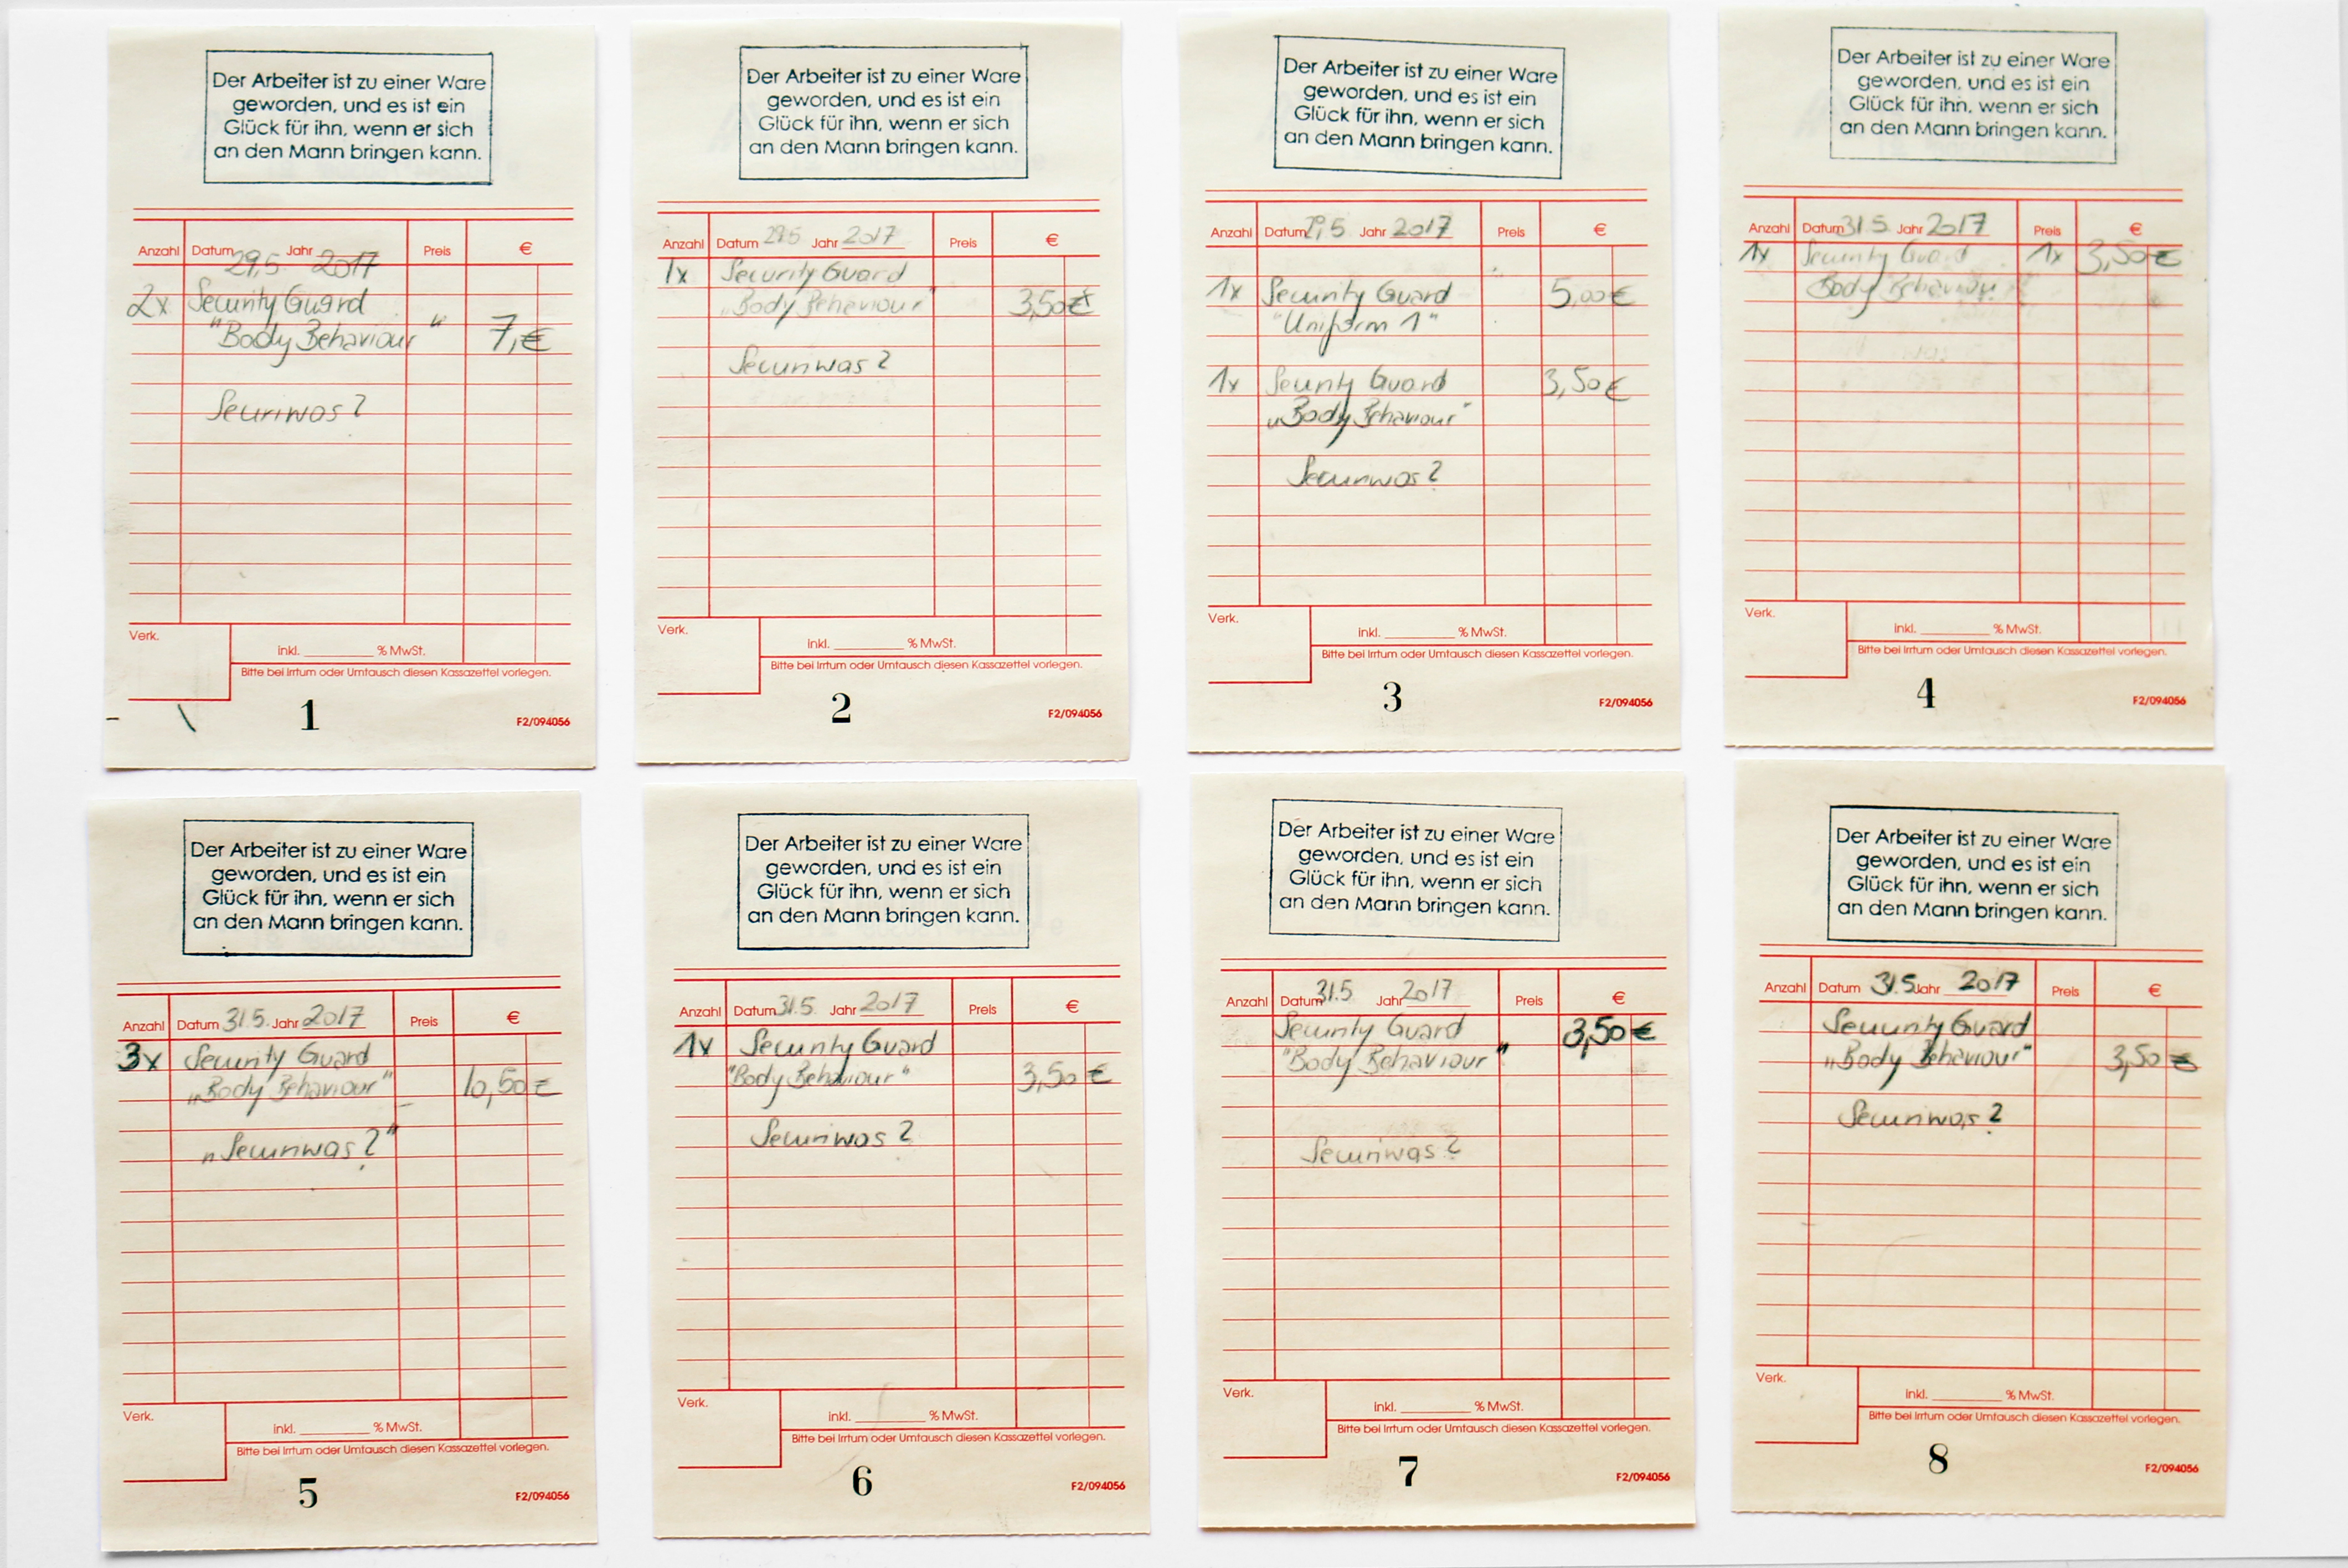 Der Arbeiter ist zu einer Ware
geworden, und es ist ein
Glück für ihn, wenn er sich
an den Mann bringen kann.
Anzahl Datum 29,5 Jahr 2017 Preis €
2x Security Guard
"Body Behaviour" 7,€
Securiwas?
Verk.
inkl. ________ % MwSt.
Bitte bei Irrtum oder Umtausch diesen Kassazettel vorlegen.
1
F2/094056
Der Arbeiter ist zu einer Ware
geworden, und es ist ein
Glück für ihn, wenn er sich
an den Mann bringen kann.
Anzahl Datum 29.5 Jahr 2017 Preis €
1x Security Guard
„Body Behaviour" 3,50€
Securiwas?
Verk.
inkl. ________ % MwSt.
Bitte bei Irrtum oder Umtausch diesen Kassazettel vorlegen.
2
F2/094056
Der Arbeiter ist zu einer Ware
geworden, und es ist ein
Glück für ihn, wenn er sich
an den Mann bringen kann.
Anzahl Datum 29,5 Jahr 2017 Preis €
1x Security Guard 5,00€
"Uniform 1"
1x Security Guard 3,50€
„Body Behaviour"
Securiwas?
Verk.
inkl. ________ % MwSt.
Bitte bei Irrtum oder Umtausch diesen Kassazettel vorlegen.
3
F2/094056
Der Arbeiter ist zu einer Ware
geworden, und es ist ein
Glück für ihn, wenn er sich
an den Mann bringen kann.
Anzahl Datum 31.5 Jahr 2017 Preis €
1x Security Guard 1x 3,50€
Body Behaviour
Verk.
inkl. ________ % MwSt.
Bitte bei Irrtum oder Umtausch diesen Kassazettel vorlegen.
4
F2/094056
Der Arbeiter ist zu einer Ware
geworden, und es ist ein
Glück für ihn, wenn er sich
an den Mann bringen kann.
Anzahl Datum 31.5. Jahr 2017 Preis €
3x Security Guard
„Body Behaviour" 10,50€
„Securiwas?"
Verk.
inkl. ________ % MwSt.
Bitte bei Irrtum oder Umtausch diesen Kassazettel vorlegen.
5
F2/094056
Der Arbeiter ist zu einer Ware
geworden, und es ist ein
Glück für ihn, wenn er sich
an den Mann bringen kann.
Anzahl Datum 31.5. Jahr 2017 Preis €
1x Security Guard
"Body Behaviour" 3,50€
Securiwas?
Verk.
inkl. ________ % MwSt.
Bitte bei Irrtum oder Umtausch diesen Kassazettel vorlegen.
6
F2/094056
Der Arbeiter ist zu einer Ware
geworden, und es ist ein
Glück für ihn, wenn er sich
an den Mann bringen kann.
Anzahl Datum 31.5 Jahr 2017 Preis €
Security Guard 3,50€
"Body Behaviour"
Securiwas?
Verk.
inkl. ________ % MwSt.
Bitte bei Irrtum oder Umtausch diesen Kassazettel vorlegen.
7
F2/094056
Der Arbeiter ist zu einer Ware
geworden, und es ist ein
Glück für ihn, wenn er sich
an den Mann bringen kann.
Anzahl Datum 31.5 Jahr 2017 Preis €
Security Guard
„Body Behaviour" 3,50€
Securiwas?
Verk.
inkl. ________ % MwSt.
Bitte bei Irrtum oder Umtausch diesen Kassazettel vorlegen.
8
F2/094056